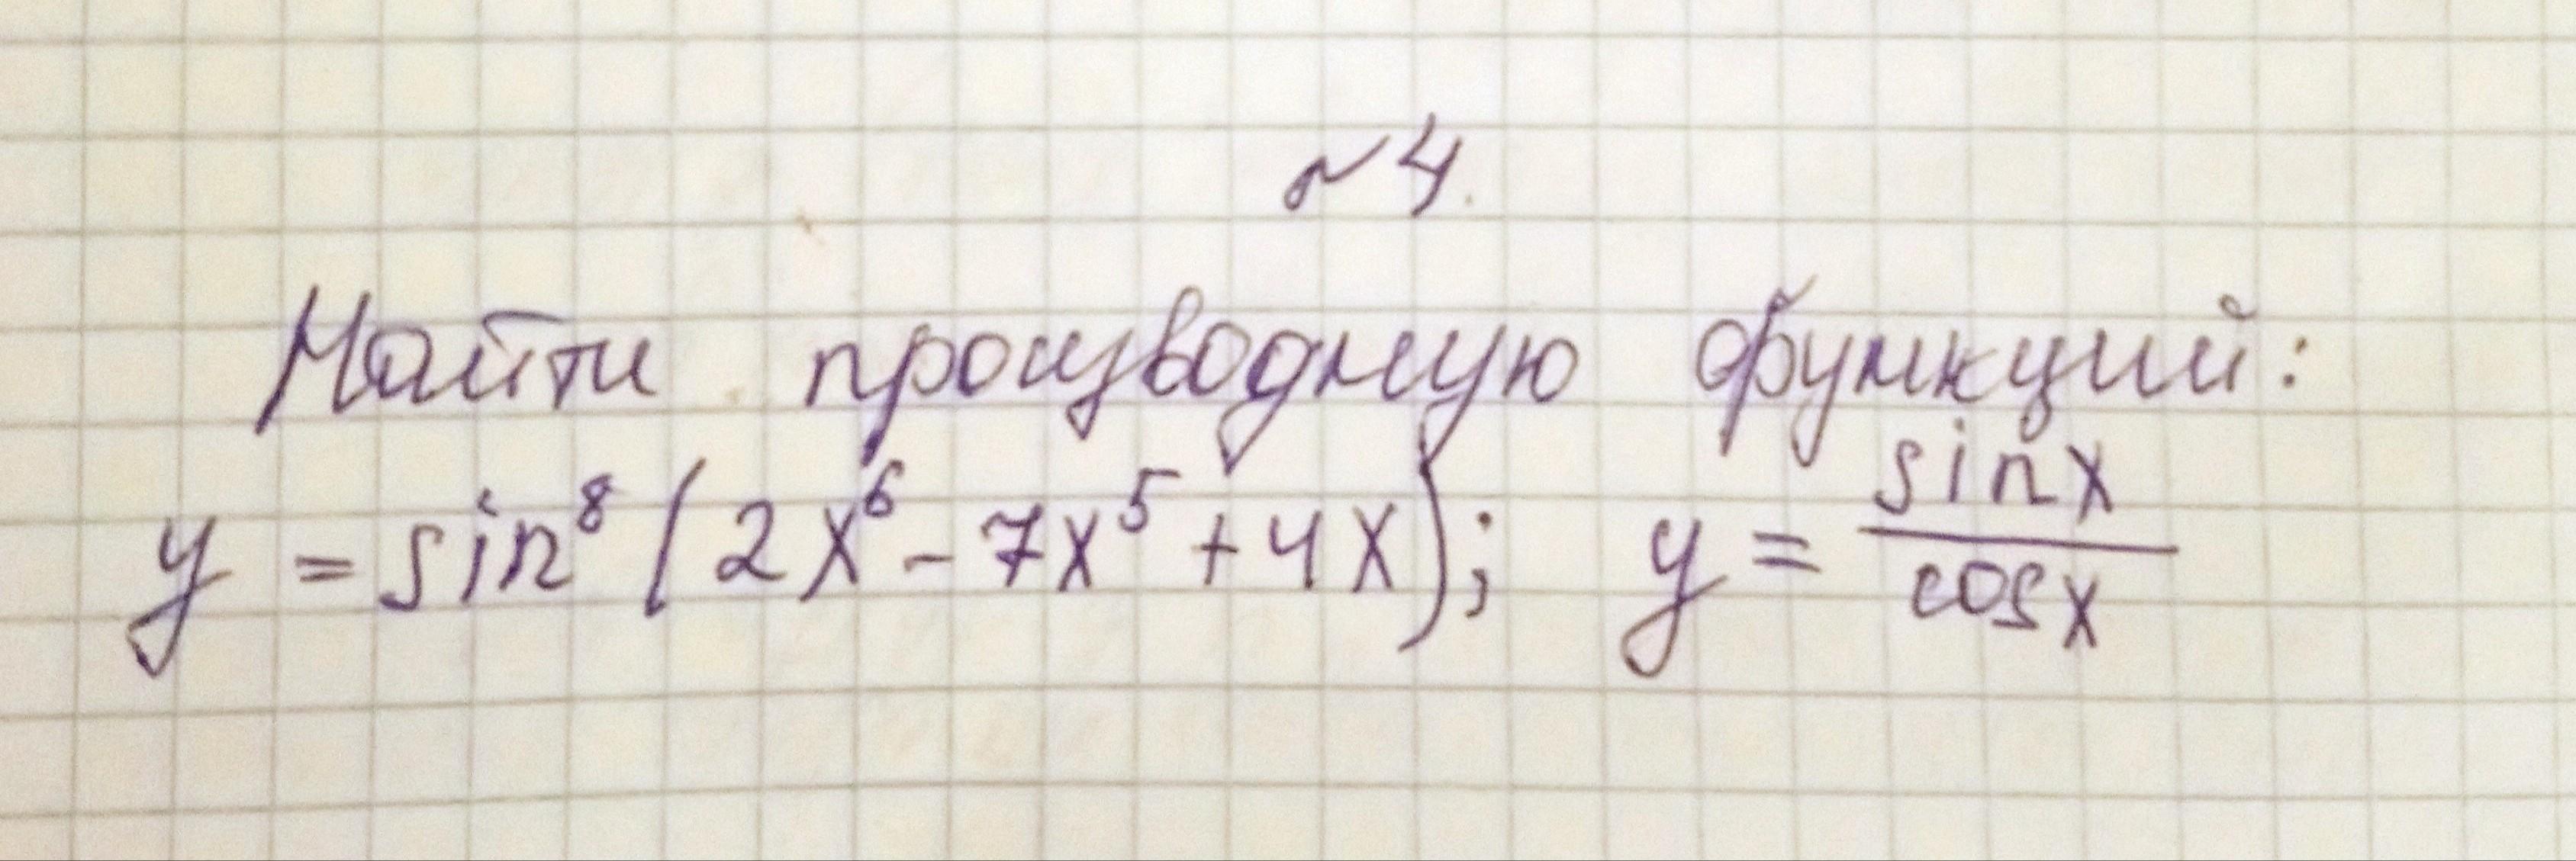 №4.
Найти производную функций:
y = sin⁸(2x⁶ - 7x⁵ + 4x); y = sinx/cosx